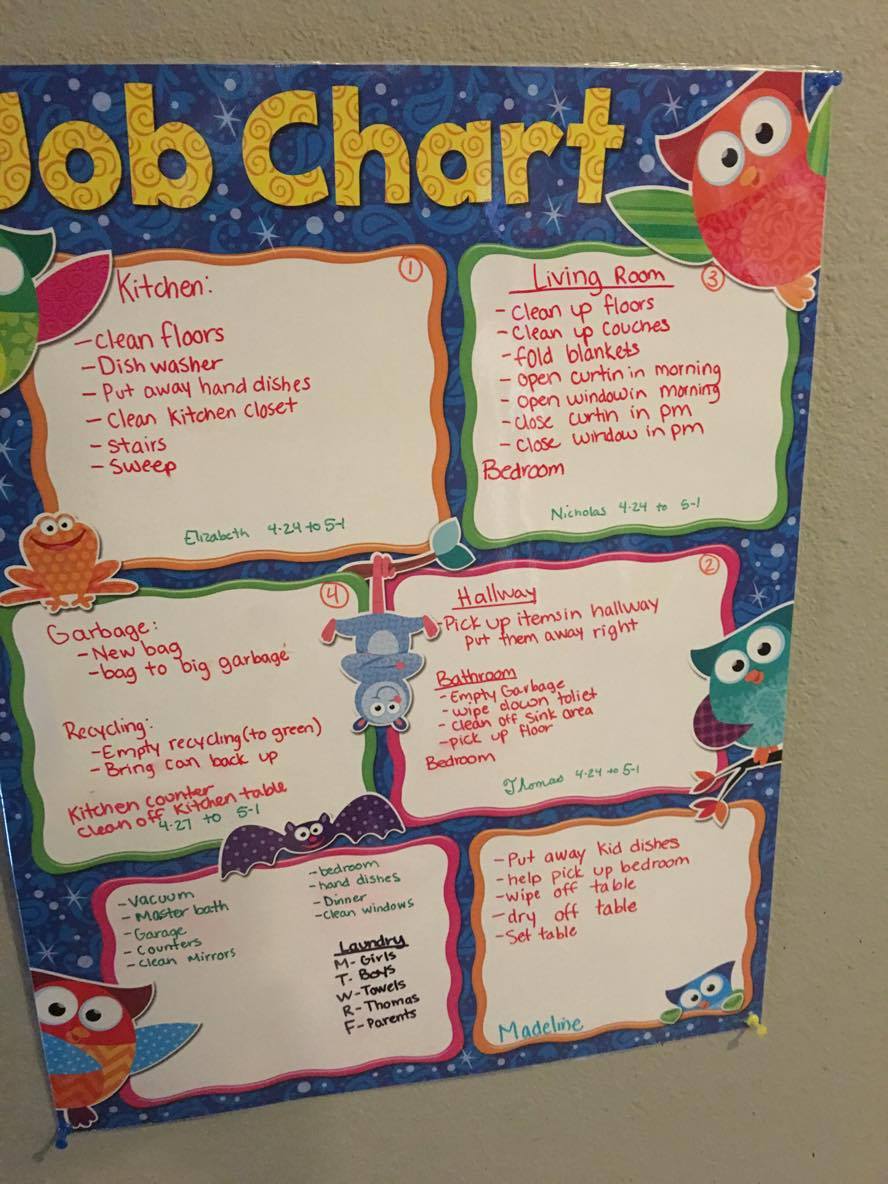 Job Chart
Kitchen:
1
- Clean floors
- Dish washer
- Put away hand dishes
- Clean Kitchen closet
- Stairs
- Sweep
Elizabeth 4-24 to 5-1
Living Room
3
- Clean up floors
- Clean up couches
- fold blankets
- open curtin in morning
- open window in morning
- close curtin in pm
- close window in pm
Bedroom
Nicholas 4-24 to 5-1
4
Garbage:
- New bag
- bag to big garbage
Recycling:
- Empty recycling (to green)
- Bring can back up
Kitchen counter
clean off Kitchen table
4-27 to 5-1
2
Hallway
- Pick up items in hallway
Put them away right
Bathroom
- Empty Garbage
- wipe down toliet
- clean off sink area
- pick up floor
Bedroom
Thomas 4-24 to 5-1
- Vacuum
- Master bath
- Garage
- Counters
- Clean Mirrors
- bedroom
- hand dishes
- Dinner
- Clean windows
Laundry
M- Girls
T- Boys
W- Towels
R- Thomas
F- Parents
- Put away kid dishes
- help pick up bedroom
- wipe off table
- dry off table
- Set table
Madeline